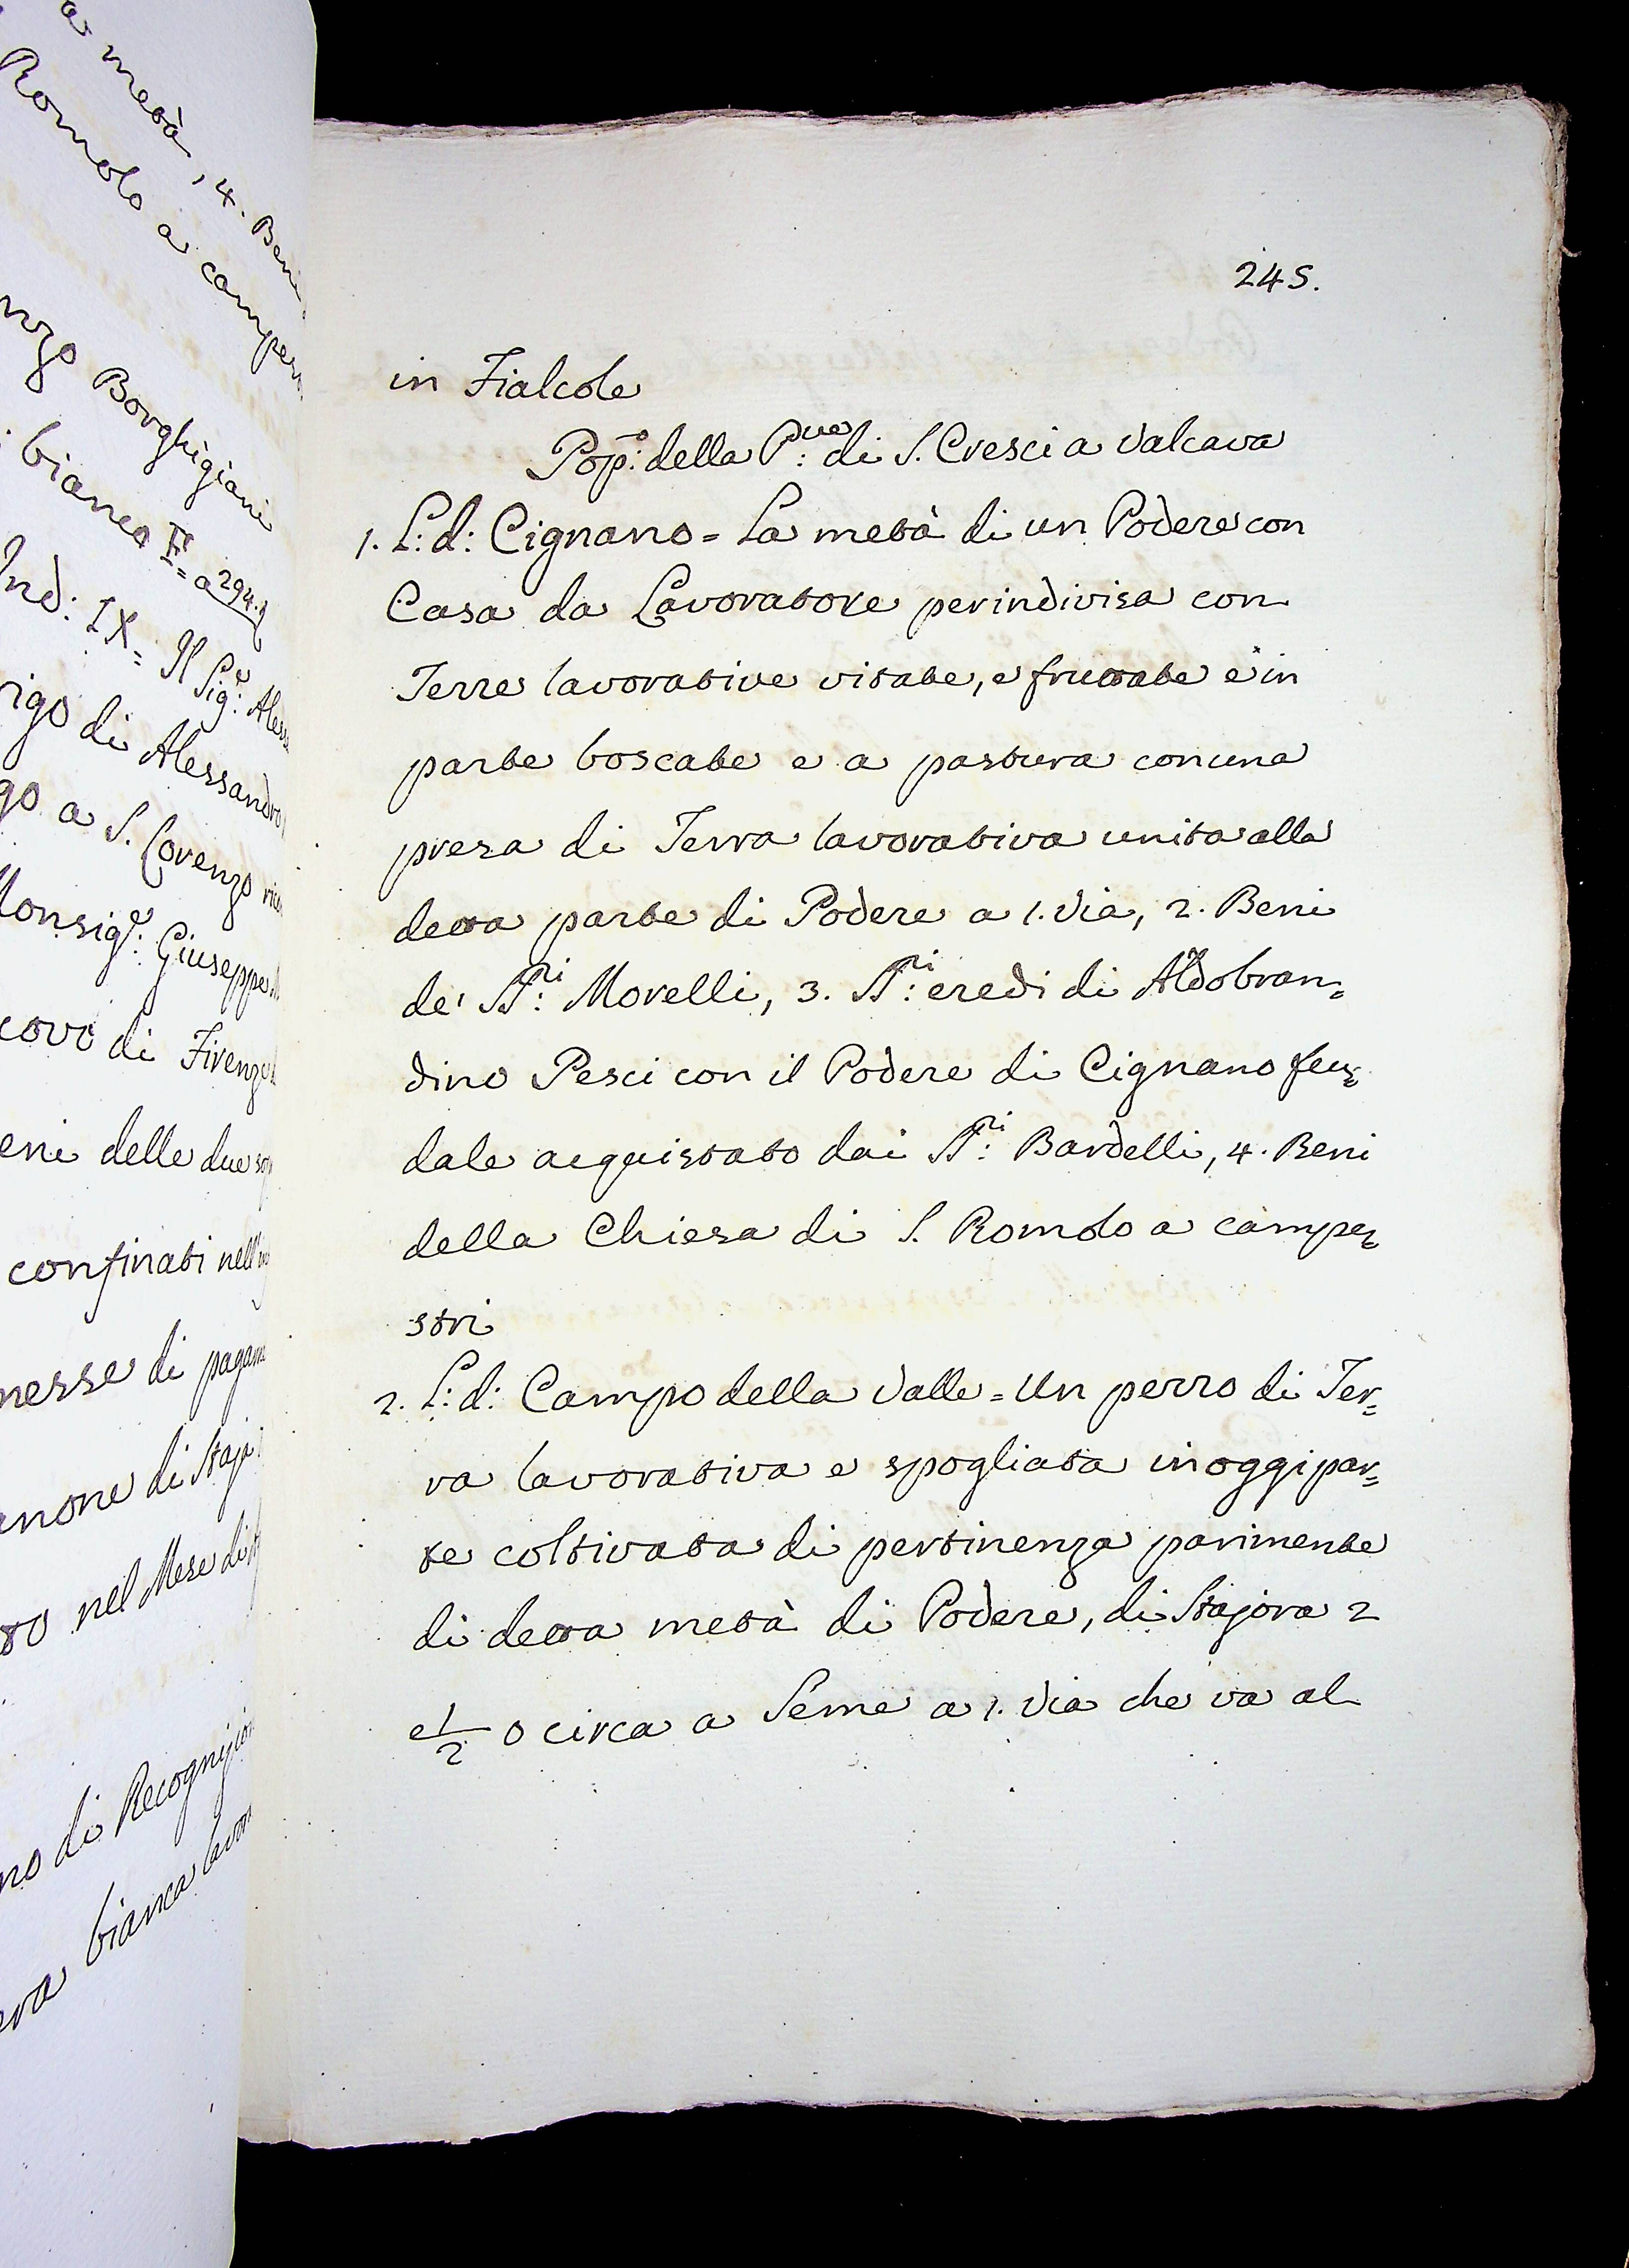 a metà, 4. Beni
Romolo a campes
nzo Borghigiani
bianca F.= a 294.
Ind: IX= Il Sig.e: Aless
rigo di Alessandro
go a S. Lorenzo
Monsig.e: Giuseppe
covo di Firenze
eni delle due
confinati nell'
messe di pagam
anone di Staja
to nel Mese di
no di Recognizion
era bianca lavor
245.
in Fialcole
Pop:o della P:ve di S. Cresci a Valcava
1. L: d: Cignano = La metà di un Podere con
Casa da Lavoratore perindivisa con
Terre lavorative vitate, e fruttate e in
parte boscate e a pastura con una
presa di Terra lavorativa unita alla
detta parte di Podere a 1. Via, 2. Beni
de' SS:ri Morelli, 3. SS:ri eredi di Aldobran=
dino Pesci con il Podere di Cignano feu=
dale acquistato dai SS:ri Bardelli, 4. Beni
della Chiesa di S. Romolo a campe=
stri
2. L: d: Campo della Valle = Un pezzo di Ter=
ra lavorativa e spogliata in oggi par=
te coltivata di pertinenza parimente
di detta metà di Podere, di Stajora 2
e 1/2 o circa a Seme a 1. Via che va al